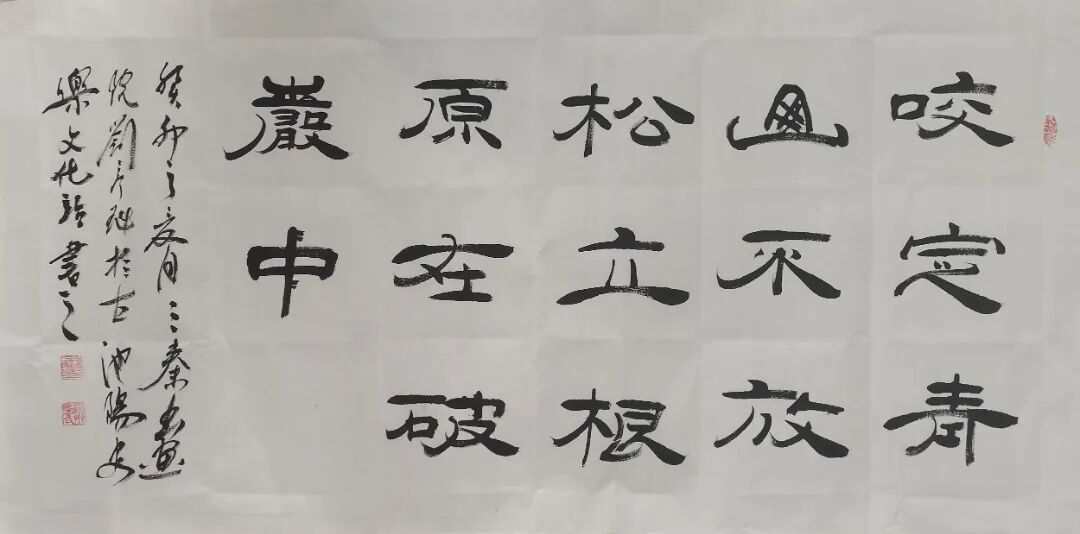 咬定青
山不放
松立根
原在破
巖中
癸卯之夏月三秦書畫
院劉於古池陽安
樂文化站書之